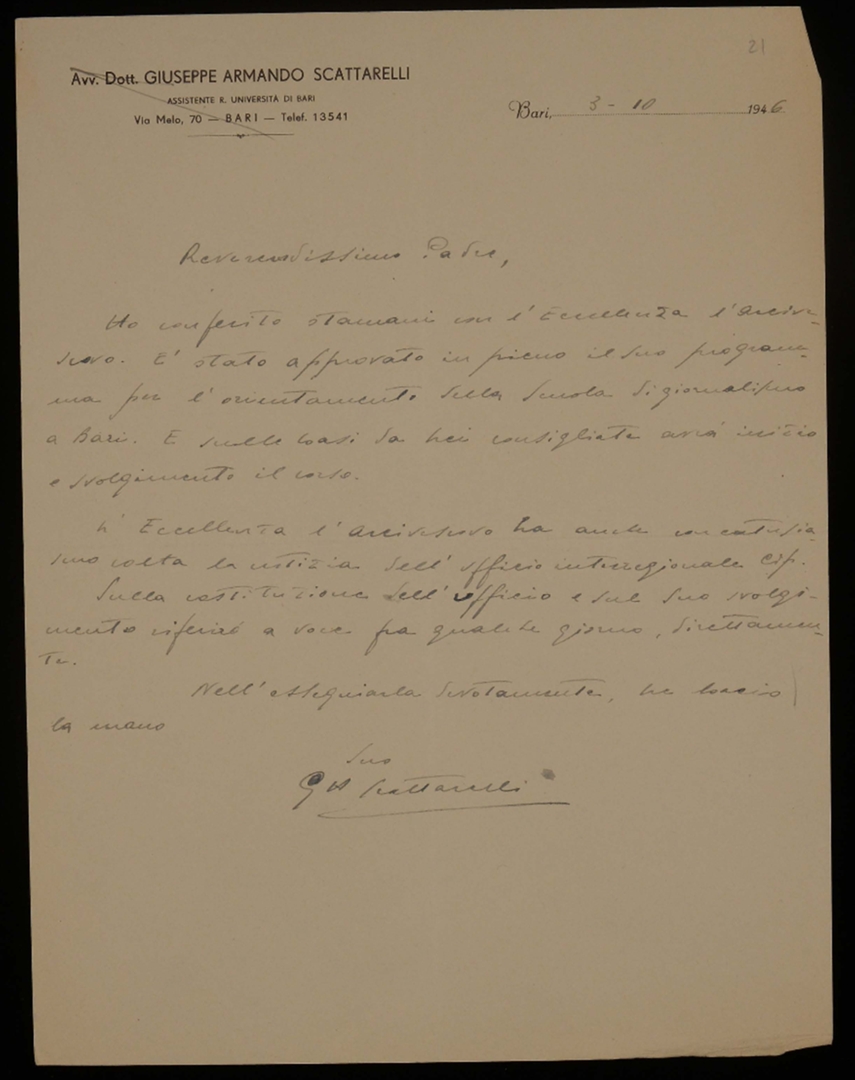 21
Avv. Dott. GIUSEPPE ARMANDO SCATTARELLI
ASSISTENTE R. UNIVERSITÀ DI BARI
Via Melo, 70 — BARI — Telef. 13541
Bari, 3 - 10 1946
Reverendissimo Padre,
Ho conferito stamani con l'Eccellenza l'Arcive-
scovo. E' stato approvato in pieno il Suo program-
ma per l'orientamento della Scuola di giornalismo
a Bari. E sulle basi da Lei consigliate avrà inizio
e svolgimento il corso.
L'Eccellenza l'Arcivescovo ha anche con entusia-
smo colta la notizia dell'Ufficio interregionale Cip.
Sulla costituzione dell'Ufficio e sul suo svolgi-
mento riferirò a voce fra qualche giorno, direttamen-
te.
Nell'ossequiarla devotamente, Le bacio
la mano
Suo
GA Scattarelli